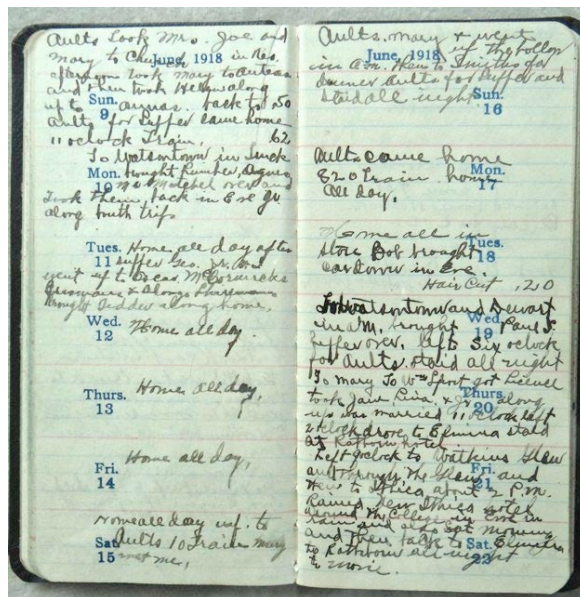 Aults Took Mrs. Joe and
Mary to Church in Res.
June, 1918
afternoon took Mary to
and then took along
up to back to .50
Sun.
9
Aults for Supper came home
11 oclock Train, .62
To Watsontown in Truck
Mon.
10
brought Lumber,
over and
Took them back in Eve Jr
along both trips
Tues.
11
Home all day after
supper Geo. Jr. and
went up to Oscar McCormicks
brought along home,
Wed.
12
Home all day.
Thurs.
13
Home all day,
Fri.
14
Home all day,
Sat.
15
Home all day up to
Aults 10 Train Mary
met me,
Aults. Mary & went
June, 1918
up the Hollow
in A.M. then to Smiths for
dinner Aults for Supper and
Staid all night
Sun.
16
Aults came home
820 Train home
all day.
Mon.
17
Home all in
Store Bob brought
Car Down in Eve.
Tues.
18
Hair Cut .20
To Watsontown and Dewart
in A.M. brought Paul S.
Wed.
19
over, left Six oclock
for Aults staid all night
To Mary To Wmsport got License
took Jane & Jr along
Thurs.
20
up was married 11 oclock left
2 oclock drove to Elmira staid
at Rathbun hotel
Left 9 oclock to Watkins Glen
and through the Glen and
Fri.
21
then to Ithica about 2 P.M.
Rained, New Ithica hotel
around the College in Eve in
rain and again Sat morning
and then back to Elmira
Sat.
22
to Rathbun all night
to movie.